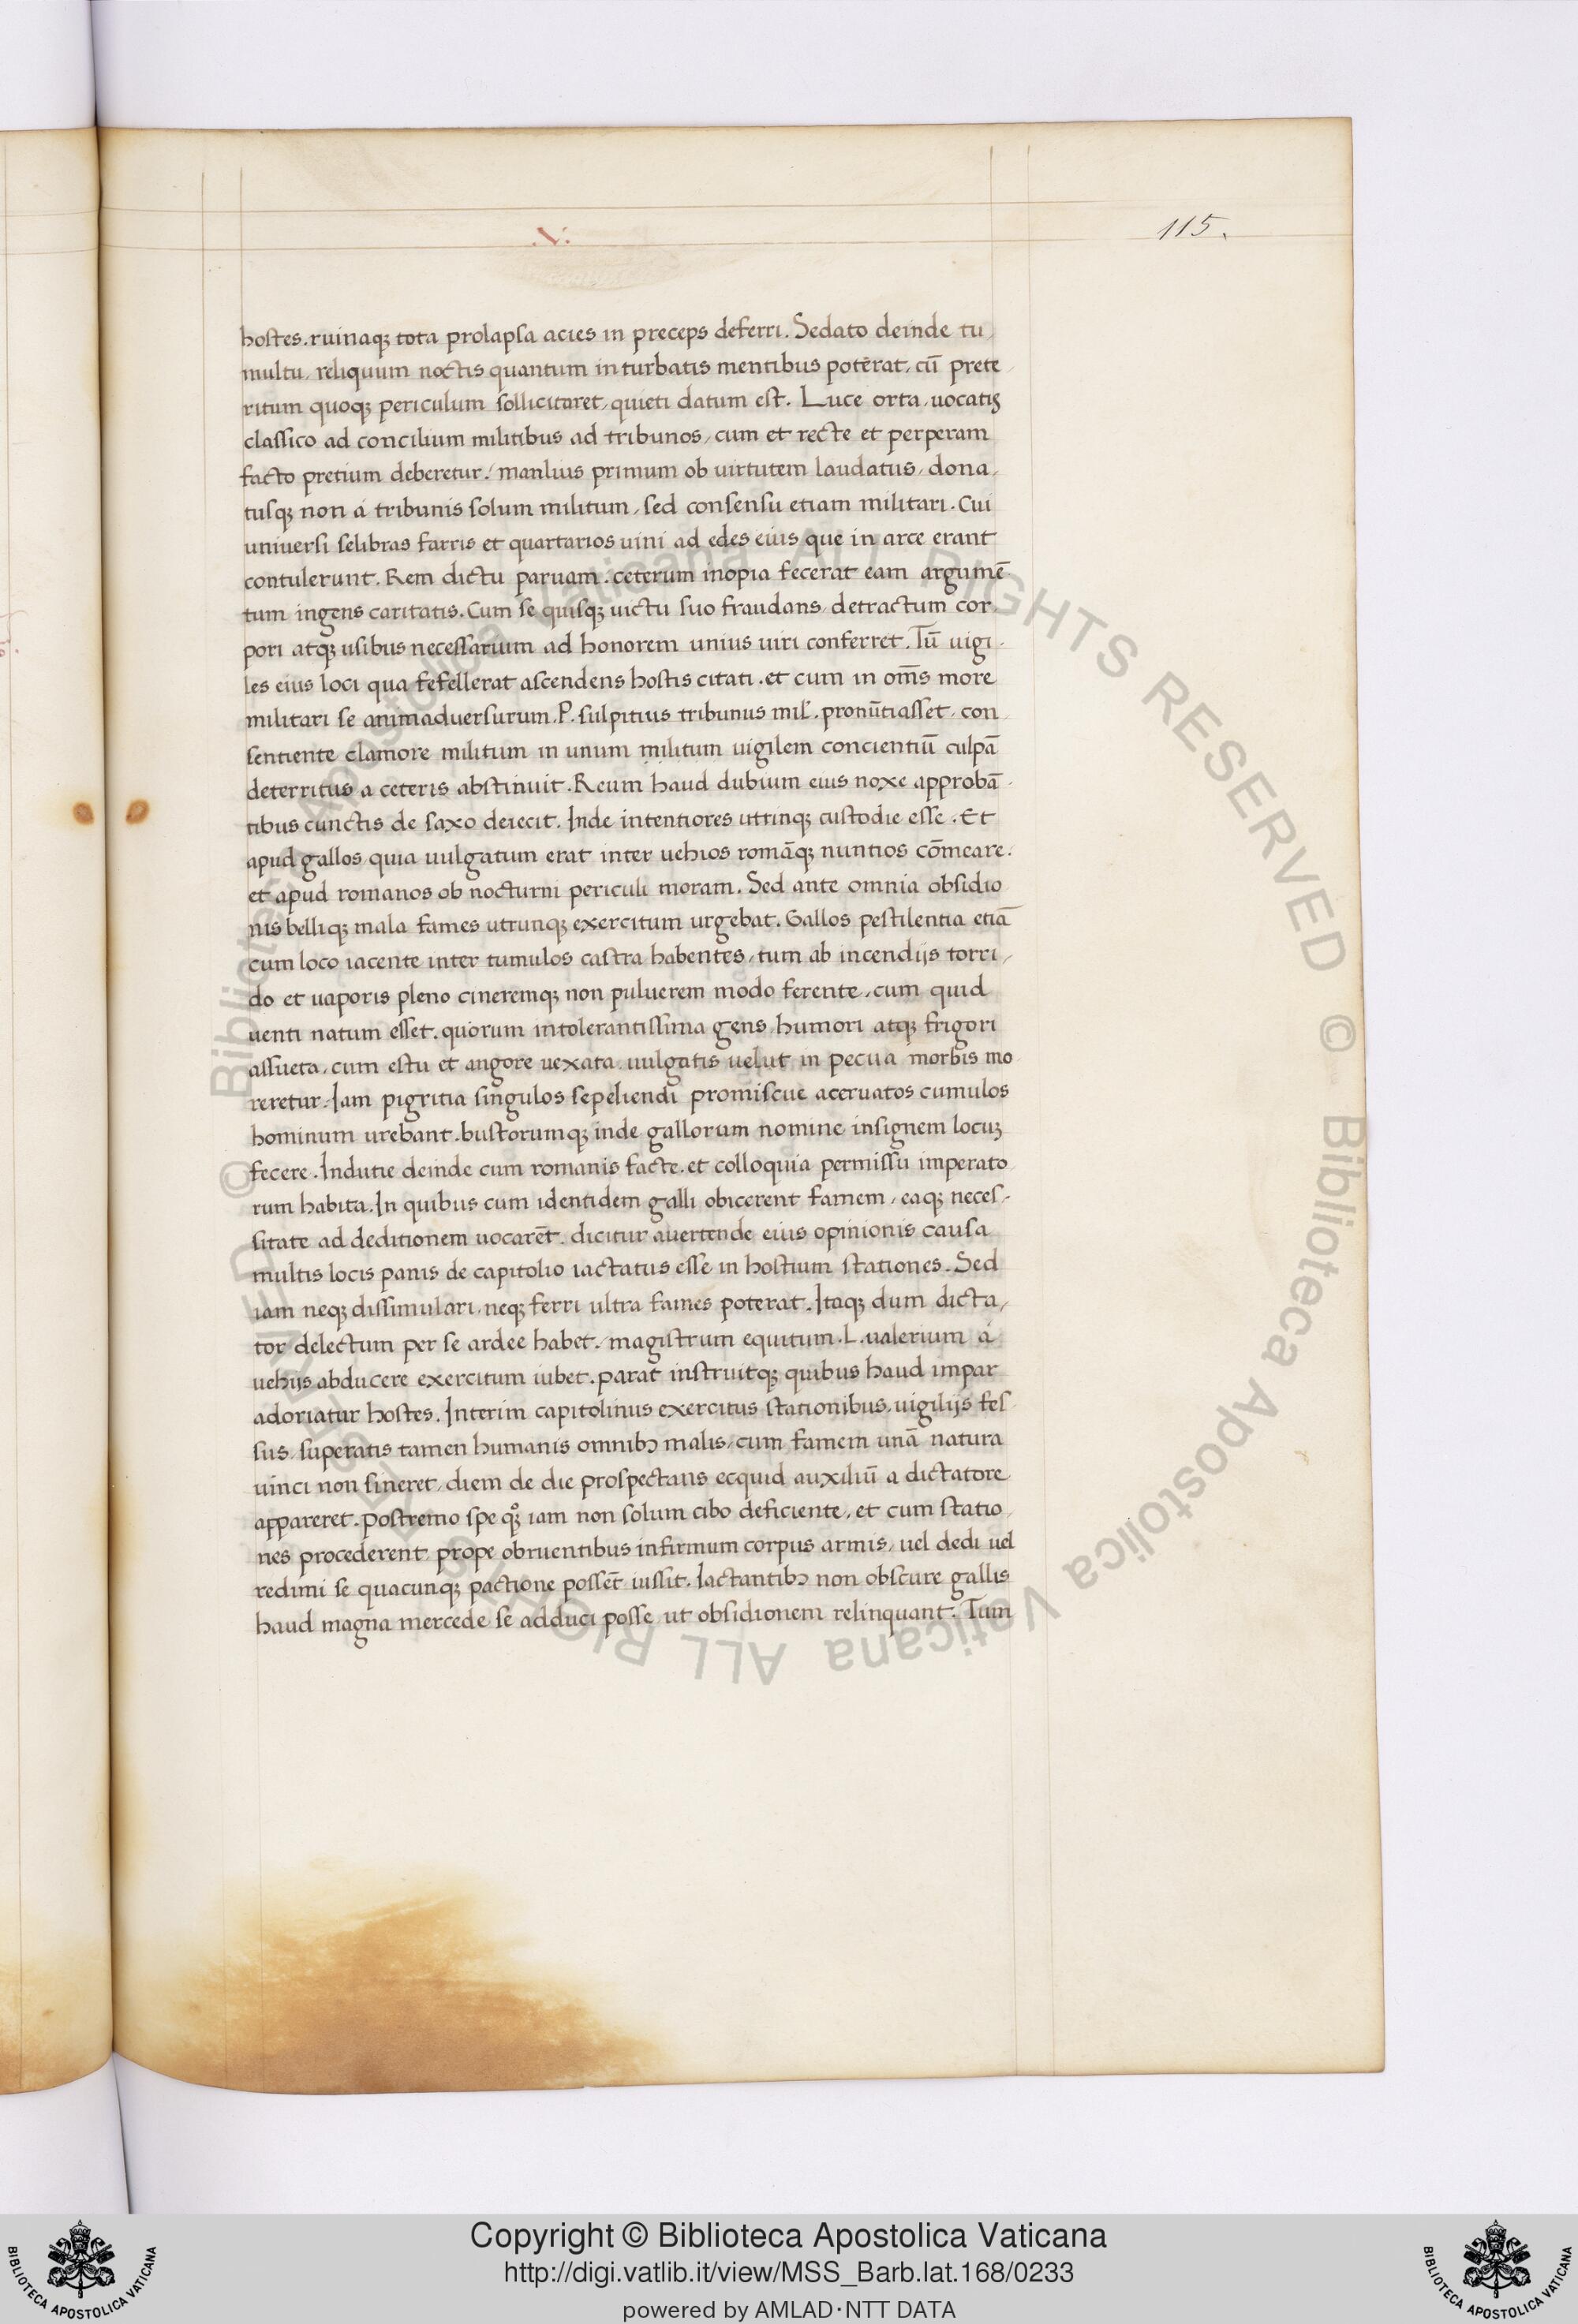 .V.
115.
hostes. ruinaqꝫ tota prolapsa acies in preceps deferri. Sedato deinde tu
multu, reliquum noctis quantum in turbatis mentibus poterat, cū prete
ritum quoqꝫ periculum sollicitaret, quieti datum est. Luce orta, uocatis
classico ad concilium militibus ad tribunos, cum et recte et perperam
facto pretium deberetur, manlius primum ob uirtutem laudatus, dona
tusqꝫ non a tribunis solum militum, sed consensu etiam militari. Cui
uniuersi selibras farris et quartarios uini ad edes eius que in arce erant
contulerunt. Rem dictu paruam. ceterum inopia fecerat eam argumē
tum ingens caritatis. Cum se quisqꝫ uictu suo fraudans, detractum cor
pori atqꝫ usibus necessarium ad honorem unius uiri conferret. Tū uigi
les eius loci qua fefellerat ascendens hostis citati. et cum in om̄s more
militari se animaduersurum. P. sulpitius tribunus mil. pronūtiasset, con
sentiente clamore militum in unum militum uigilem concientiū culpā
deterritus a ceteris abstinuit. Reum haud dubium eius noxe approbā
tibus cunctis de saxo deiecit. Inde intentiores utrinqꝫ custodie esse. Et
apud gallos, quia uulgatum erat inter uehios romāqꝫ nuntios cōmeare.
et apud romanos ob nocturni periculi moram. Sed ante omnia obsidio
nis bellıqꝫ mala fames utrunqꝫ exercitum urgebat. Gallos pestilentia etiā
cum loco iacente inter tumulos castra habentes, tum ab incendijs torri
do et uaporis pleno cineremqꝫ non puluerem modo ferente, cum quid
uenti natum esset. quorum intolerantissima gens humori atqꝫ frigori
assueta, cum estu et angore uexata uulgatis uelut in pecua morbis mo
reretur. Iam pigritia singulos sepeliendi promiscue aceruatos cumulos
hominum urebant. bustorumqꝫ inde gallorum nomine insignem locuꝫ
fecere. Indutie deinde cum romanis facte. et colloquia permissu imperato
rum habita. In quibus cum identidem galli obicerent famem, eaqꝫ neces
sitate ad deditionem uocarēt. dicitur auertende eius opinionis causa
multis locis panis de capitolio iactatus esse in hostium stationes. Sed
iam neqꝫ dissimulari, neqꝫ ferri ultra fames poterat. Itaqꝫ dum dicta
tor delectum per se ardee habet, magistrum equitum. L. ualerium a
uehijs abducere exercitum iubet. parat instruitqꝫ quibus haud impar
adoriatur hostes. Interim capitolinus exercitus stationibus, uigilijs fes
sus, superatis tamen humanis omnibꝰ malis, cum famem unā natura
uinci non sineret, diem de die prospectans ecquid auxiliū a dictatore
appareret. postremo spe qꝫ iam non solum cibo deficiente, et cum statio
nes procederent prope obruentibus infirmum corpus armis, uel dedi uel
redimi se quacunqꝫ pactione possēt iussit. Iactantibꝰ non obscure gallis
haud magna mercede se adduci posse ut obsidionem relinquant. Tum
© Biblioteca Apostolica Vaticana ALL RIGHTS RESERVED
© Biblioteca Apostolica Vaticana ALL RIGHTS RESERVED
Copyright © Biblioteca Apostolica Vaticana
http://digi.vatlib.it/view/MSS_Barb.lat.168/0233
powered by AMLAD·NTT DATA
BIBLIOTECA APOSTOLICA VATICANA
BIBLIOTECA APOSTOLICA VATICANA